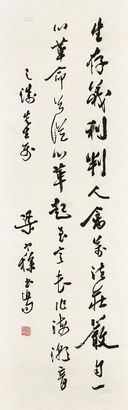 生存義利判人禽萬法莊嚴自一
心革命必從心革起至言長作海潮音
先生
梁寒操書